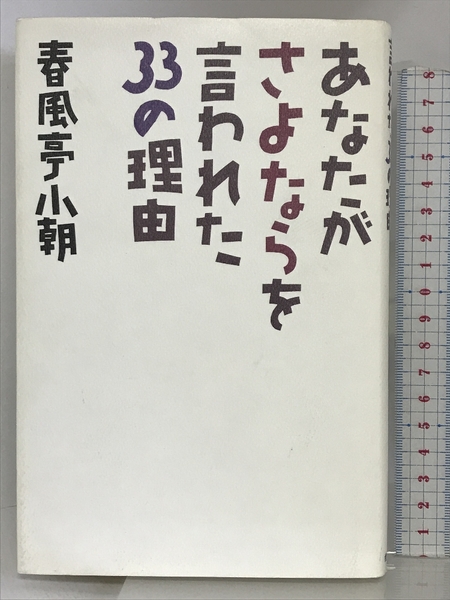 あなたが
さよならを
言われた
33の理由
春風亭小朝
8
7
6
5
4
3
2
1
0
9
8
7
6
5
4
3
2
1